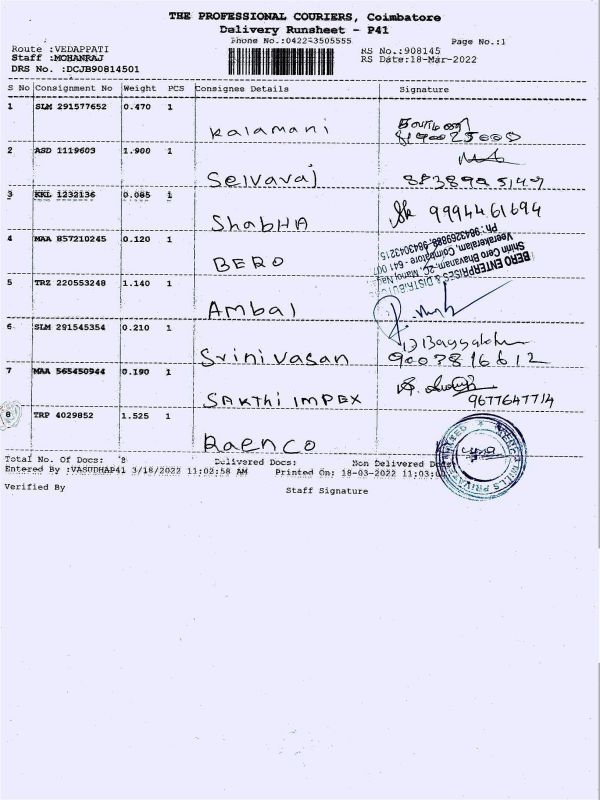 THE PROFESSIONAL COURIERS, Coimbatore
Delivery Runsheet - P41
Phone No.:0422-3505555 Page No.:1
Route :VEDAPPATI RS No.:908145
Staff :MOHANRAJ RS Date:18-Mar-2022
DRS No. :DCJB90814501
S No Consignment No Weight PCS Consignee Details Signature
1 SLM 291577652 0.470 1
Kalamani
2 ASD 1119603 1.900 1
Selvaraj
3 KKL 1232136 0.085 1
ShabHA 9994461694
4 MAA 857210245 0.120 1
BERO
BERO ENTERPRISES & DISTRIBUTOR
Shinn Cero Bhavanam, 2C, Manoj Nagar
Veerakeralam, Coimbatore - 641 007
5 TRZ 220553248 1.140 1
Ambal
6 SLM 291545354 0.210 1
Srinivasan 9003816612
7 MAA 565450944 0.190 1
SAKTHI IMPEX 9677647714
8 TRP 4029852 1.525 1
Raenco
RAENCO MILLS PRIVATE LIMITED
Total No. Of Docs: 8 Delivered Docs: Non Delivered Docs:
Entered By :VASUDHAP41 3/18/2022 11:02:58 AM Printed On: 18-03-2022 11:03:01
Verified By Staff Signature